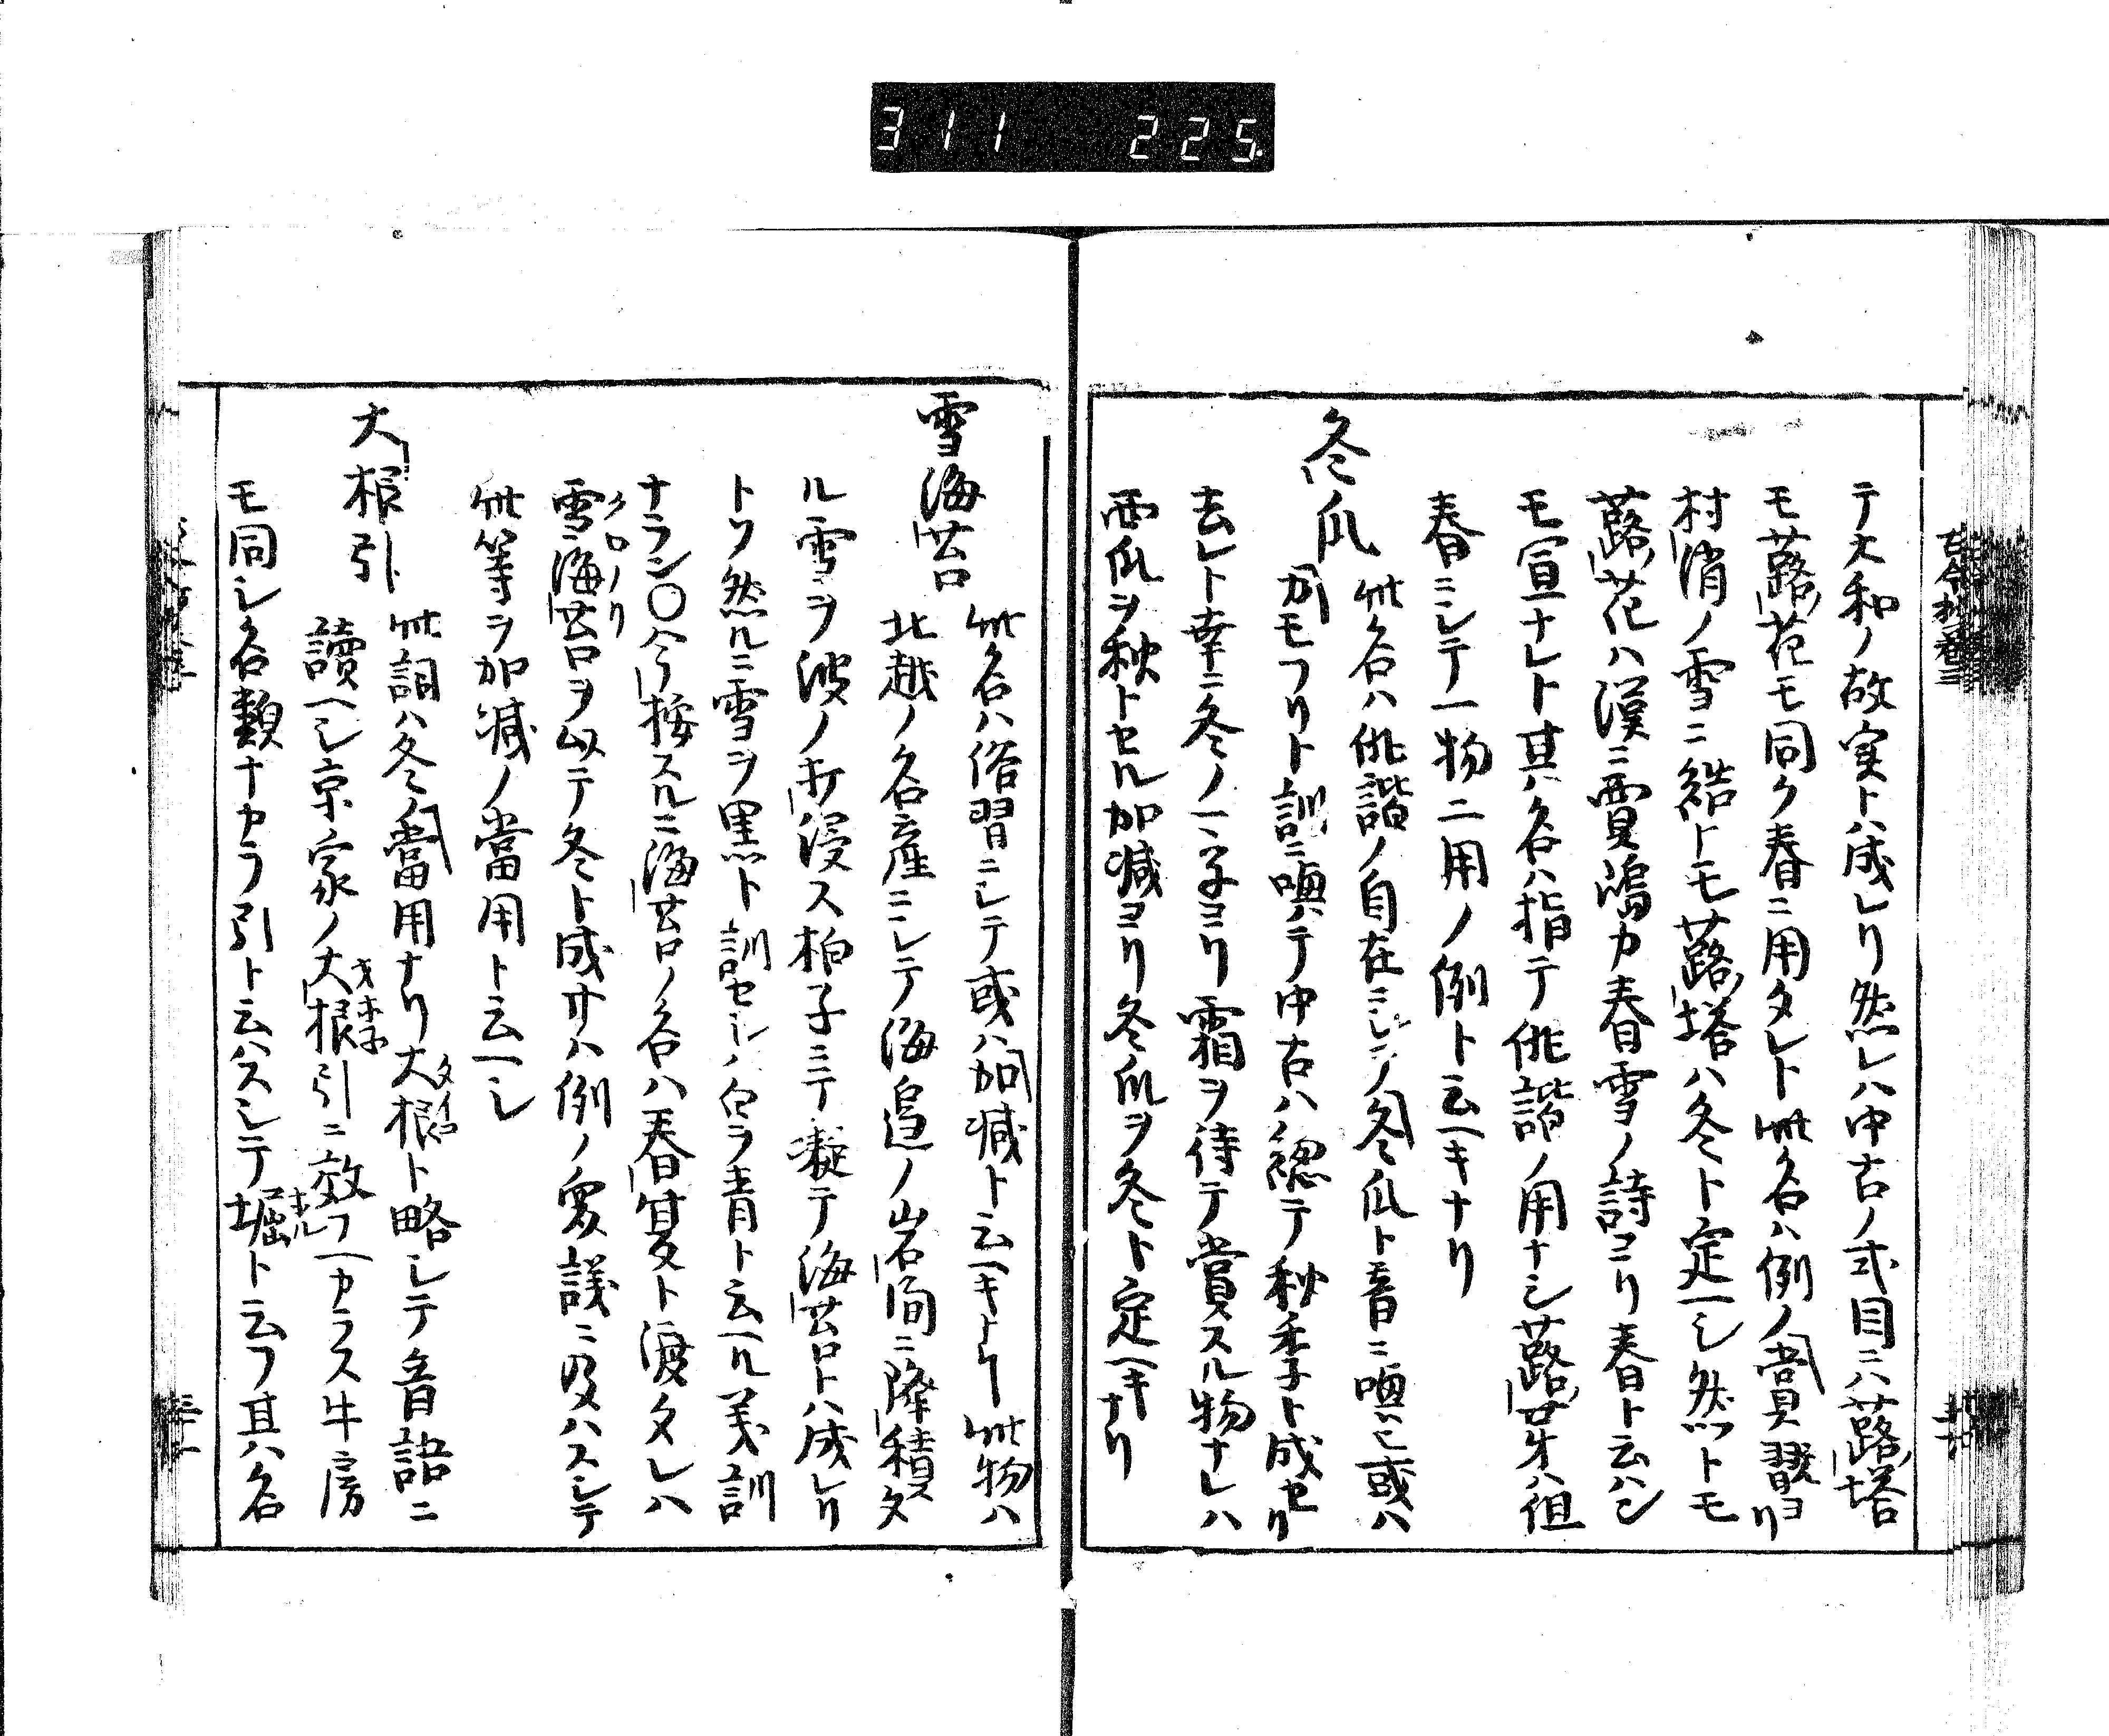 311 225
テ大和ノ故実トハ成レリ然レハ中古ノ式目ニハ蕗ノ塔
モ蕗ノ花モ同ク春ニ用タレト此名ハ例ノ賞翫ヨリ
村消ノ雪ニ結トモ蕗ノ塔ハ冬ト定ヘシ然トモ
蕗ノ花ハ漢ニ賈嶋カ春雪ノ詩ヨリ春ト云ハン
モ宣ナレト其ハ名ハ指テ俳諧ノ用ナシ蕗ノ芽ハ但
春ニシテ一物二用ノ例ト云ヘキナリ
冬瓜
此名ハ俳諧ノ自在ニシテ冬瓜ト音ニ喚ヒ或ハ
カモフリト訓ニ喚テ中古ハ總テ秋季ト成セリ
去レト幸ニ冬ノ一字ヨリ霜ヲ待テ賞スル物ナレハ
西瓜ヲ秋トセル加減ヨリ冬瓜ヲ冬ト定ヘキナリ
雪海苔
此名ハ俗習ニシテ或ハ加減ト云ヘキナリ此物ハ
北越ノ名産ニシテ海邉ノ岩間ニ降積タ
ル雪ヲ波ノ打浸ス拍子ニテ凝テ海苔トハ成レリ
トソ然ルニ雪ヲ黒ト訓セシハ白ヲ青ト云ヘル義訓
ナラン〇今按スルニ海苔ノ名ハ春夏ト渡タレハ
雪海苔ヲ以テ冬ト成サハ例ノ衆議ニ及ハスシテ
クロノリ
此等ヲ加減ノ當用ト云ヘシ
大根引
此詞ハ冬ノ當用ナリ大根ト略シテ音語ニ
タイコ
讀ヘシ京家ノ大根引ニ效フヘカラス牛房
オホネ
モ同シ名類ナカラ引ト云ハスシテ堀ト云フ其ハ名
ホル